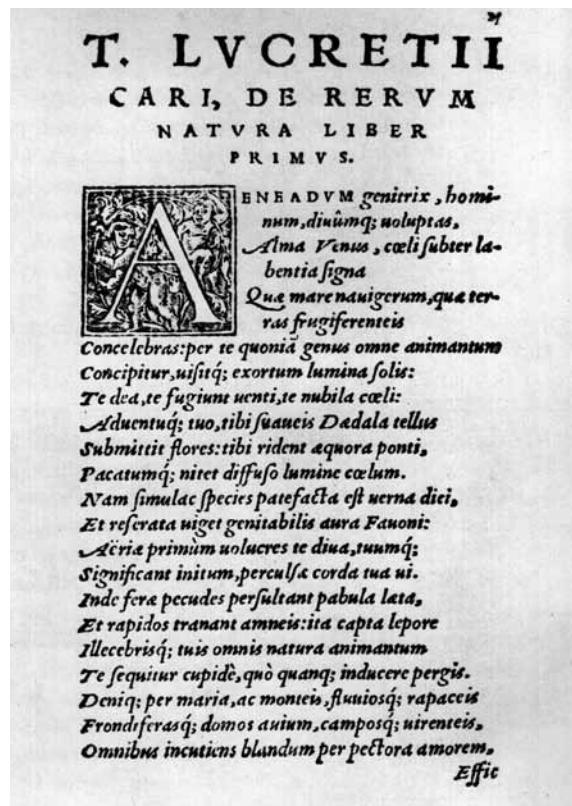 T. LVCRETII
CARI, DE RERVM
NATVRA LIBER
PRIMVS.
AENEADVM genitrix, homi-
num, diuûmq; uoluptas,
Alma Venus, cœli subter la-
bentia signa
Quæ mare nauigerum, quæ ter-
ras frugiferenteis
Concelebras: per te quoniā genus omne animantum
Concipitur, uisitq; exortum lumina solis:
Te dea, te fugiunt uenti, te nubila cœli:
Aduentuq́; tuo, tibi suaueis Dædala tellus
Submittit flores: tibi rident æquora ponti,
Pacatumq́; nitet diffuso lumine cœlum.
Nam simulac species patefacta est uerna diei,
Et reserata uiget genitabilis aura Fauoni:
Aëriæ primùm uolucres te diua, tuumq́;
Significant initum, perculsæ corda tua ui.
Inde feræ pecudes persultant pabula læta,
Et rapidos tranant amneis: ita capta lepore
Illecebrisq́; tuis omnis natura animantum
Te sequitur cupidè, quò quanq; inducere pergis.
Deniq; per maria, ac monteis, fluuiosq́; rapaceis
Frondiferasq́; domos auium, camposq́; uirenteis,
Omnibus incutiens blandum per pectora amorem,
Effic